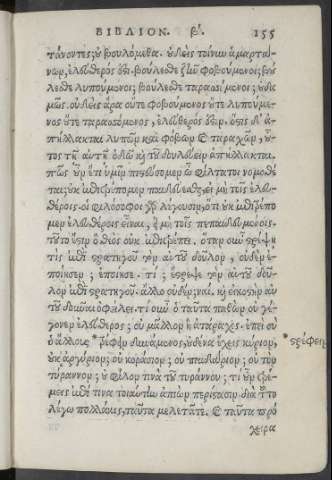 ΒΙΒΛΙΟΝ. β'. 155
τάνοντες; οὐ βουλόμεθα. οὐδεὶς τοίνυν ἁμαρτά-
νων, ἐλεύθερός ὅξι. βούλεσθε ζῆν φοβούμενοι; βού
λεσθε λυπούμενοι; βούλεσθε ταρασσόμενοι; οὐδα
μῶς. οὐδεὶς ἄρα οὔτε φοβούμενος οὔτε λυπούμε-
νος οὔτε ταρασσόμενος, ἐλεύθερός ἐστιν. ὅστις δ' ἀ-
πήλλακται λυπῶν καὶ φόβων καὶ ταραχῶν, οὗ-
τος τῇ αὐτῇ ὁδῷ καὶ τοῦ δουλεύειν ἀπήλλακται.
πῶς οὖν ἔτι ὑμῖν πιστεύσομεν ὦ φίλτατοι νομοθέ
ται; οὐκ ἐπιτρέπομεν παιδεύεσθαι, εἰ μὴ τοῖς ἐλευ-
θέροις. οἱ φιλόσοφοι γὰρ λέγουσιν, ὅτι οὐκ ἐπιτρέπο
μεν ἐλευθέροις εἶναι, εἰ μὴ τοῖς πεπαιδευμένοις.
τοῦτό ἐστιν ὁ θεὸς οὐκ ἐπιτρέπει. ὅταν οὖν στρέψῃ
τὶς ἐπὶ στρατηγοῦ τὸν αὑτοῦ δοῦλον, οὐδὲν ἐ-
ποίησεν; ἐποίησε. τί; ἔστρεψε τὸν αὑτοῦ δοῦ-
λον ἐπὶ στρατηγοῦ. ἄλλο οὐδέν; ναί, καὶ εἰκοστὴν αὐ
τοῦ δοῦναι ὀφείλει. τί οὖν ὁ ταῦτα παθὼν οὐ γέ-
γονεν ἐλεύθερος; οὐ μᾶλλον ἢ ἀτάραχος. ἐπεὶ σὺ
ὁ ἄλλους * δυνάμενος, οὐδένα ἔχεις κύριον; * στρέφειν
οὐκ ἀργύριον; οὐ κοράσιον; οὐ παιδάριον; οὐ τὸν
τύραννον; οὐ φίλον τινὰ τοῦ τυράννου; τί οὖν τρέ-
μεις ἐπί τινα τοιαύτην ἀπιὼν περίστασιν διὰ τοῦτο
λέγω πολλάκις, ταῦτα μελετᾶτε. καὶ ταῦτα πρό
χειρα